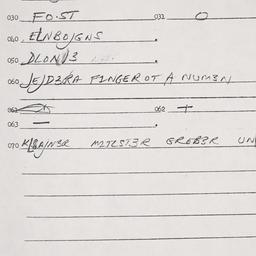 030 FO.ST 031 O
040 ELNBOJGNS
050 DLONJ3
060 JEJD3RA FINGER OT A NUM3N
061 062 +
063 —
070 M2TLST3R GREB3R UN